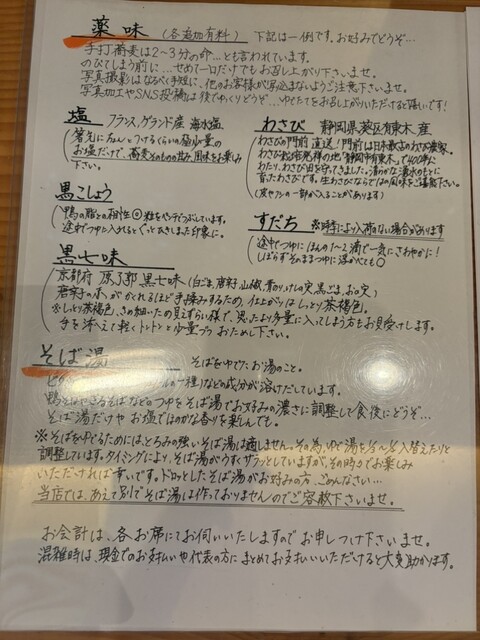 薬味 (各追加有料) 下記は一例です。お好みでどうぞ…
手打蕎麦は2〜3分の命…とも言われています。
のびてしまう前に…せめて一口だけでもお召し上がり下さいませ。
写真撮影はなるべく手短に、他のお客様が写込まないようご注意下さいませ。
写真加工やSNS投稿は後でゆっくりどうぞ…ゆでたてをお召し上がりいただけると嬉しいです!
塩 フランス、ゲランド産 海水塩
箸先にちょん、とつけるくらいの極少量の
お塩だけで、蕎麦そのものの甘み、風味をお楽しみ
下さい。
わさび 静岡県葵区有東木産
わさびの門前 直送! 門前は日本最古のわさび農家。
わさび栽培発祥の地「静岡市有東木」で400年に
わたり、わさび田を守ってきました。清らかな湧水のもとに
育ったわさびです。生わさびならではの風味をご堪能下さい。
黒こしょう
(鴨の脂との相性◎ 粒をペンチでつぶしています。
途中でつゆに入れるとぐっとひきしまた印象に。
すだち ※時季により入荷のない場合があります
途中でつゆにほんの1〜2滴で一気にさわやかに!
しばらくそのままつゆに浮かべても○
黒七味
京都府 原了郭 黒七味 (白ごま、唐辛子、山椒、青のり、けしの実、黒ごま、おの実)
唐辛子の赤がかくれるほど手揉みするため、仕上がりはしっとり茶褐色。
※しっとり茶褐色、きめ細いため見えずらい様で、思ったより多量に入ってしまう方もお見受けします。
手を添えて軽くトントンと少量づつおため下さい。
そば湯 そばをゆでたお湯のこと。
などの成分が溶けだしています。
鴨とねぎそばなどのつゆをそば湯でお好みの濃さに調整して食後にどうぞ…
そば湯だけや お塩でほのかな香りを楽しんでも。
※そばをゆでるためには、とろみの強いそば湯は適しません。その為、ゆで湯を⅓〜½入替えたりと
調整しています。タイミングにより、そば湯がうすくサラッとしていますが、その時々でお楽しみ
いただければ幸いです。ドロッとしたそば湯がお好みの方、ごめんなさい…
当店では、あえて別でそば湯は作っておりませんのでご容赦下さいませ。
お会計は、各お席にてお伺いいたしますのでお申しつけ下さいませ。
混雑時は、現金でのお支払いや代表の方にまとめてお支払いいただけると大変助かります。